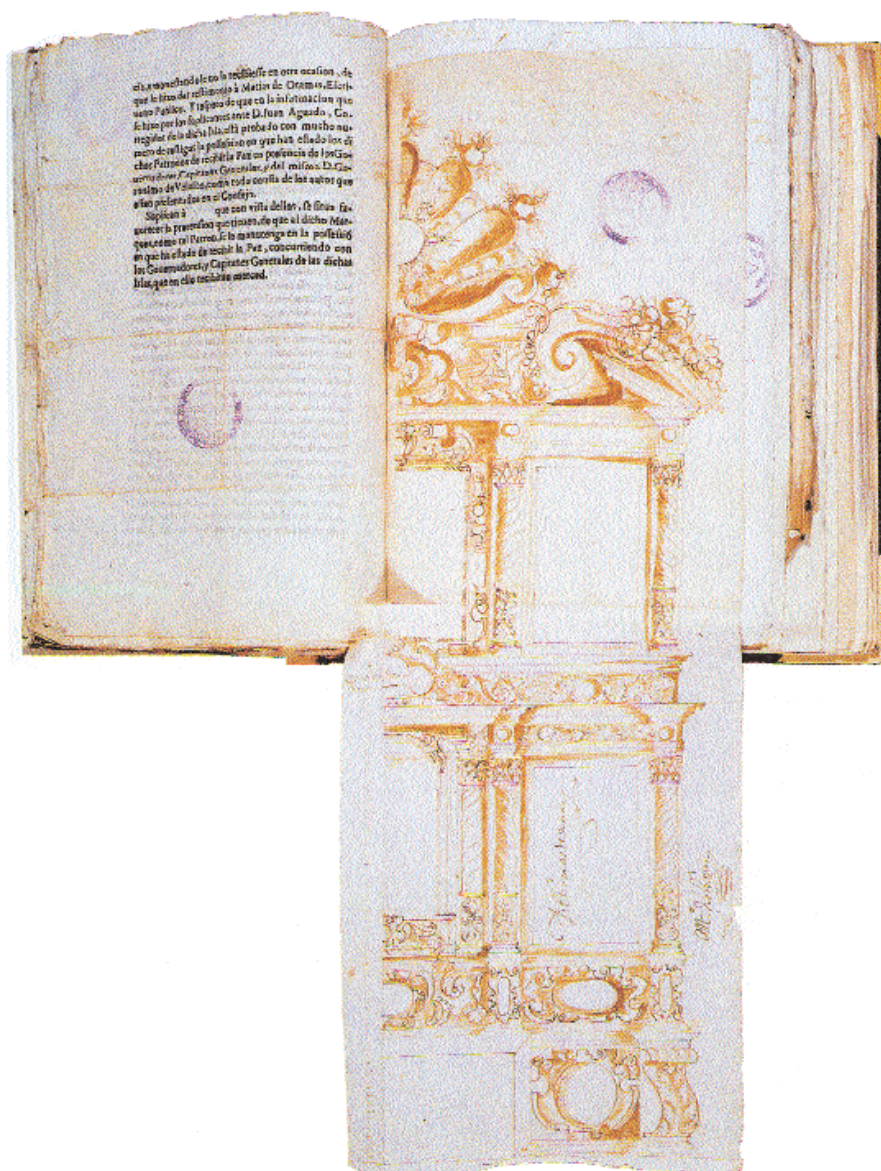 cia, amonestandole no la recibiesse en otra ocasion, de
que le hizo dar testimonio à Matias de Oramas, Escri-
uano Publico. Y respeto de que en la informacion que
se hizo por los suplicantes ante D. Juan Aguado, Co-
rregidor de la dicha Isla, està probado con mucho nu-
mero de testigos la possession en que han estado los di
chos Patronos de recibir la Paz en presencia de los Go-
uernadores, Capitanes Generales, y del mismo D. Ge-
ronimo de Velasco, como todo consta de los autos que
estan presentados en el Consejo.
Suplican à que con vista dellos, se sirua fa-
uorecer la pretension que tienen, de que al dicho Mar-
ques, como tal Patron, se le mantenga en la possessiõ
en que ha estado de recibir la Paz, concurriendo con
los Gouernadores, y Capitanes Generales de las dichas
Islas, que en ello recibiràn merced.